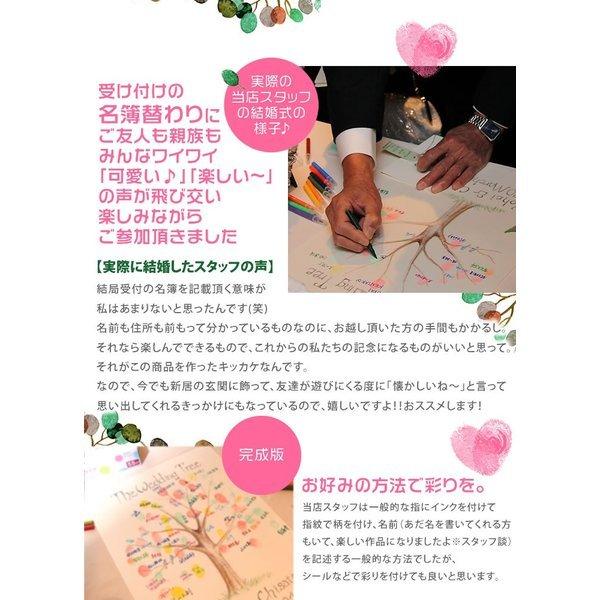 受け付けの
名簿替わりに
ご友人も親族も
みんなワイワイ
「可愛い♪」「楽しい～」
の声が飛び交い
楽しみながら
ご参加頂きました
実際の
当店スタッフ
の結婚式の
様子♪
【実際に結婚したスタッフの声】
結局受付の名簿を記載頂く意味が
私はあまりないと思ったんです(笑)
名前も住所も前もって分かっているものなのに、お越し頂いた方の手間もかかるし。
それなら楽しんでできるもので、これからの私たちの記念になるものがいいと思って。
それがこの商品を作ったキッカケなんです。
なので、今でも新居の玄関に飾って、友達が遊びにくる度に「懐かしいね～」と言って
思い出してくれるきっかけにもなっているので、嬉しいですよ!!おススメします!
完成版
The Wedding Tree
お好みの方法で彩りを。
当店スタッフは一般的な指にインクを付けて
指紋で柄を付け、名前（あだ名を書いてくれる方
もいて、楽しい作品になりましたよ※スタッフ談）
を記述する一般的な方法でしたが、
シールなどで彩りを付けても良いと思います。